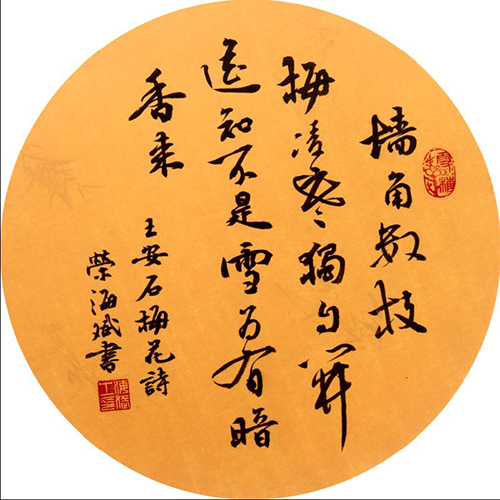 墙角数枝
梅凌寒獨自開
遥知不是雪为有暗
香来
王安石梅花詩
榮海斌書